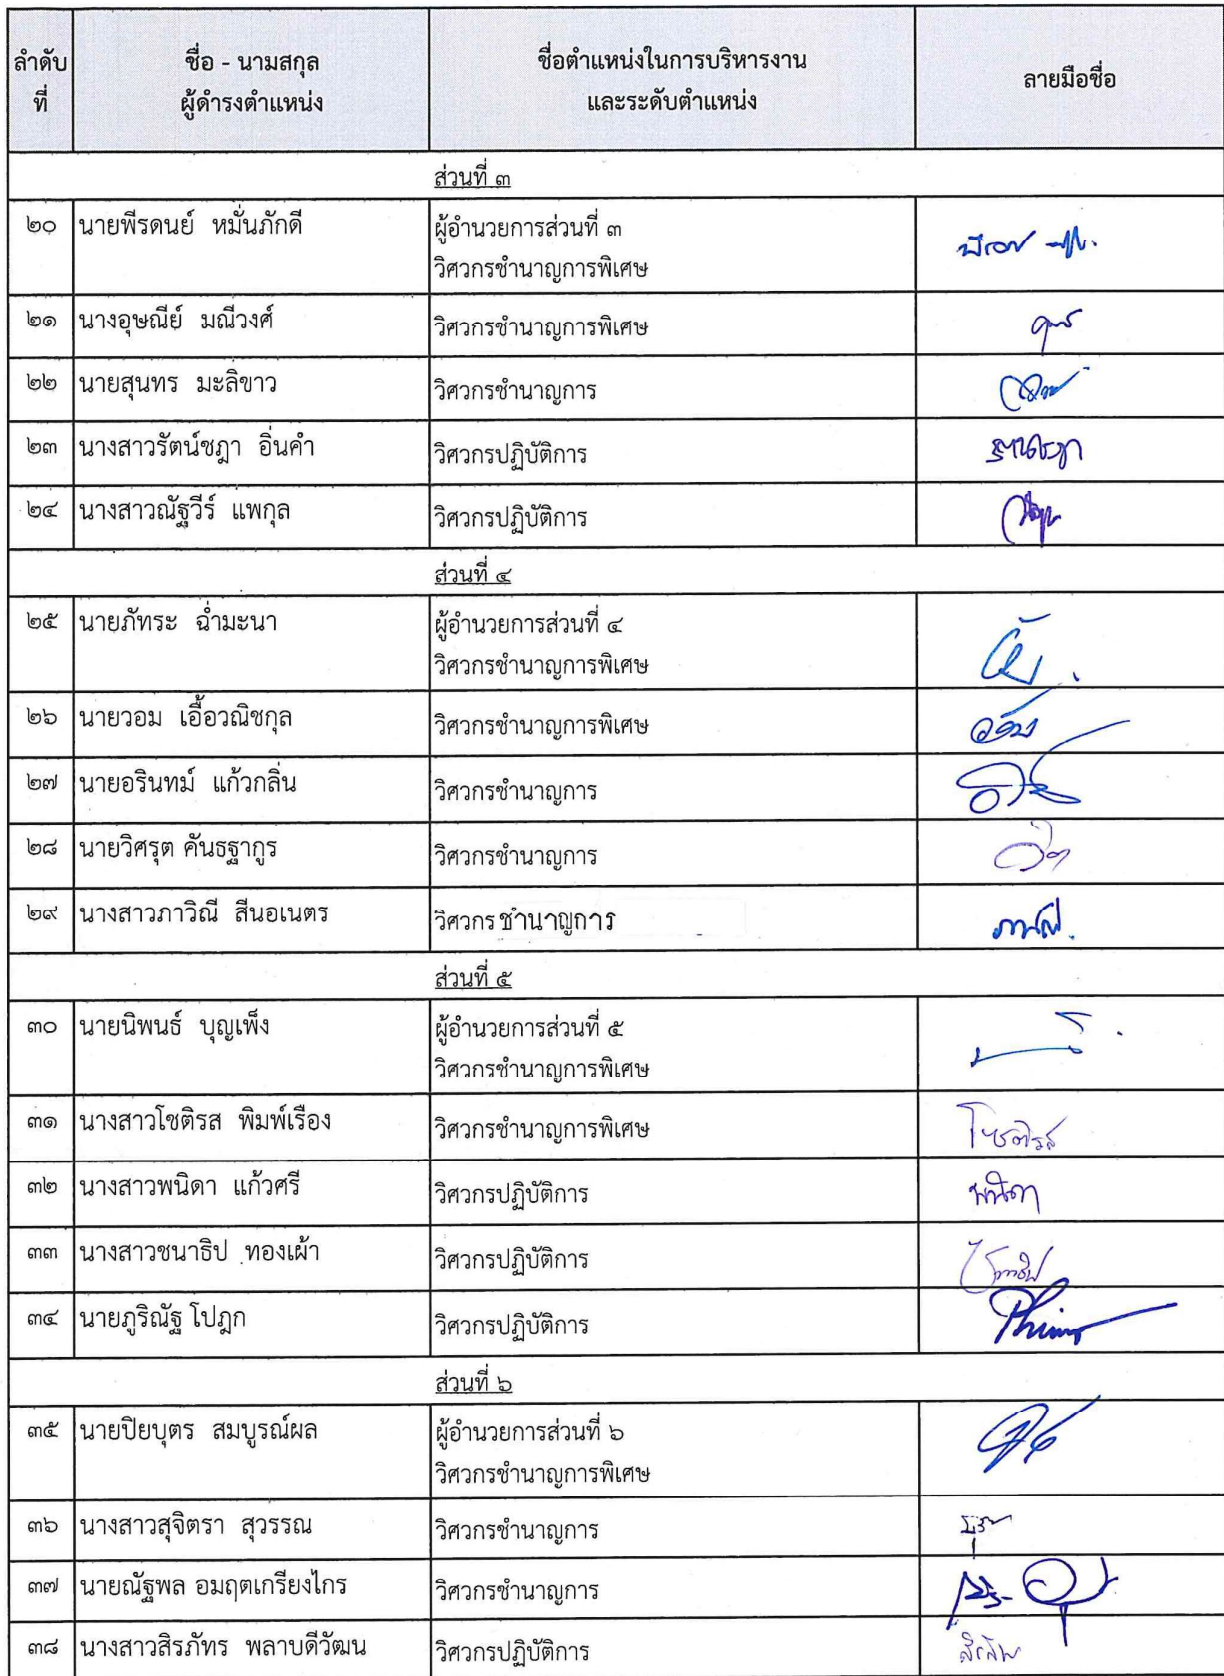 ลำดับที่ ชื่อ - นามสกุล ผู้ดำรงตำแหน่ง ชื่อตำแหน่งในการบริหารงาน และระดับตำแหน่ง ลายมือชื่อ
ส่วนที่ ๓
๒๐ นายพีรดนย์ หมั่นภักดี ผู้อำนวยการส่วนที่ ๓
วิศวกรชำนาญการพิเศษ
๒๑ นางอุษณีย์ มณีวงศ์ วิศวกรชำนาญการพิเศษ
๒๒ นายสุนทร มะลิขาว วิศวกรชำนาญการ
๒๓ นางสาวรัตน์ชฎา อิ่นคำ วิศวกรปฏิบัติการ
๒๔ นางสาวณัฐวีร์ แพกุล วิศวกรปฏิบัติการ
ส่วนที่ ๔
๒๕ นายภัทระ ฉ่ำมะนา ผู้อำนวยการส่วนที่ ๔
วิศวกรชำนาญการพิเศษ
๒๖ นายวอม เอื้อวณิชกุล วิศวกรชำนาญการพิเศษ
๒๗ นายอรินทม์ แก้วกลิ่น วิศวกรชำนาญการ
๒๘ นายวิศรุต คันธฐากูร วิศวกรชำนาญการ
๒๙ นางสาวภาวิณี สีนอเนตร วิศวกรชำนาญการ
ส่วนที่ ๕
๓๐ นายนิพนธ์ บุญเพ็ง ผู้อำนวยการส่วนที่ ๕
วิศวกรชำนาญการพิเศษ
๓๑ นางสาวโชติรส พิมพ์เรือง วิศวกรชำนาญการพิเศษ โชติรส
๓๒ นางสาวพนิดา แก้วศรี วิศวกรปฏิบัติการ พนิดา
๓๓ นางสาวชนาธิป ทองเผ้า วิศวกรปฏิบัติการ
๓๔ นายภูริณัฐ โปฎก วิศวกรปฏิบัติการ
ส่วนที่ ๖
๓๕ นายปิยบุตร สมบูรณ์ผล ผู้อำนวยการส่วนที่ ๖
วิศวกรชำนาญการพิเศษ
๓๖ นางสาวสุจิตรา สุวรรณ วิศวกรชำนาญการ
๓๗ นายณัฐพล อมฤตเกรียงไกร วิศวกรชำนาญการ
๓๘ นางสาวสิรภัทร พลาบดีวัฒน วิศวกรปฏิบัติการ